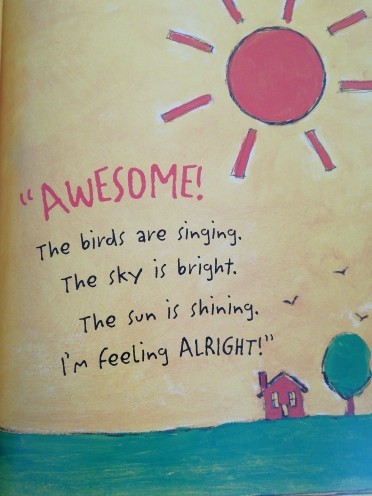 "AWESOME!
The birds are singing.
The sky is bright.
The sun is shining.
I'm feeling ALRIGHT!"